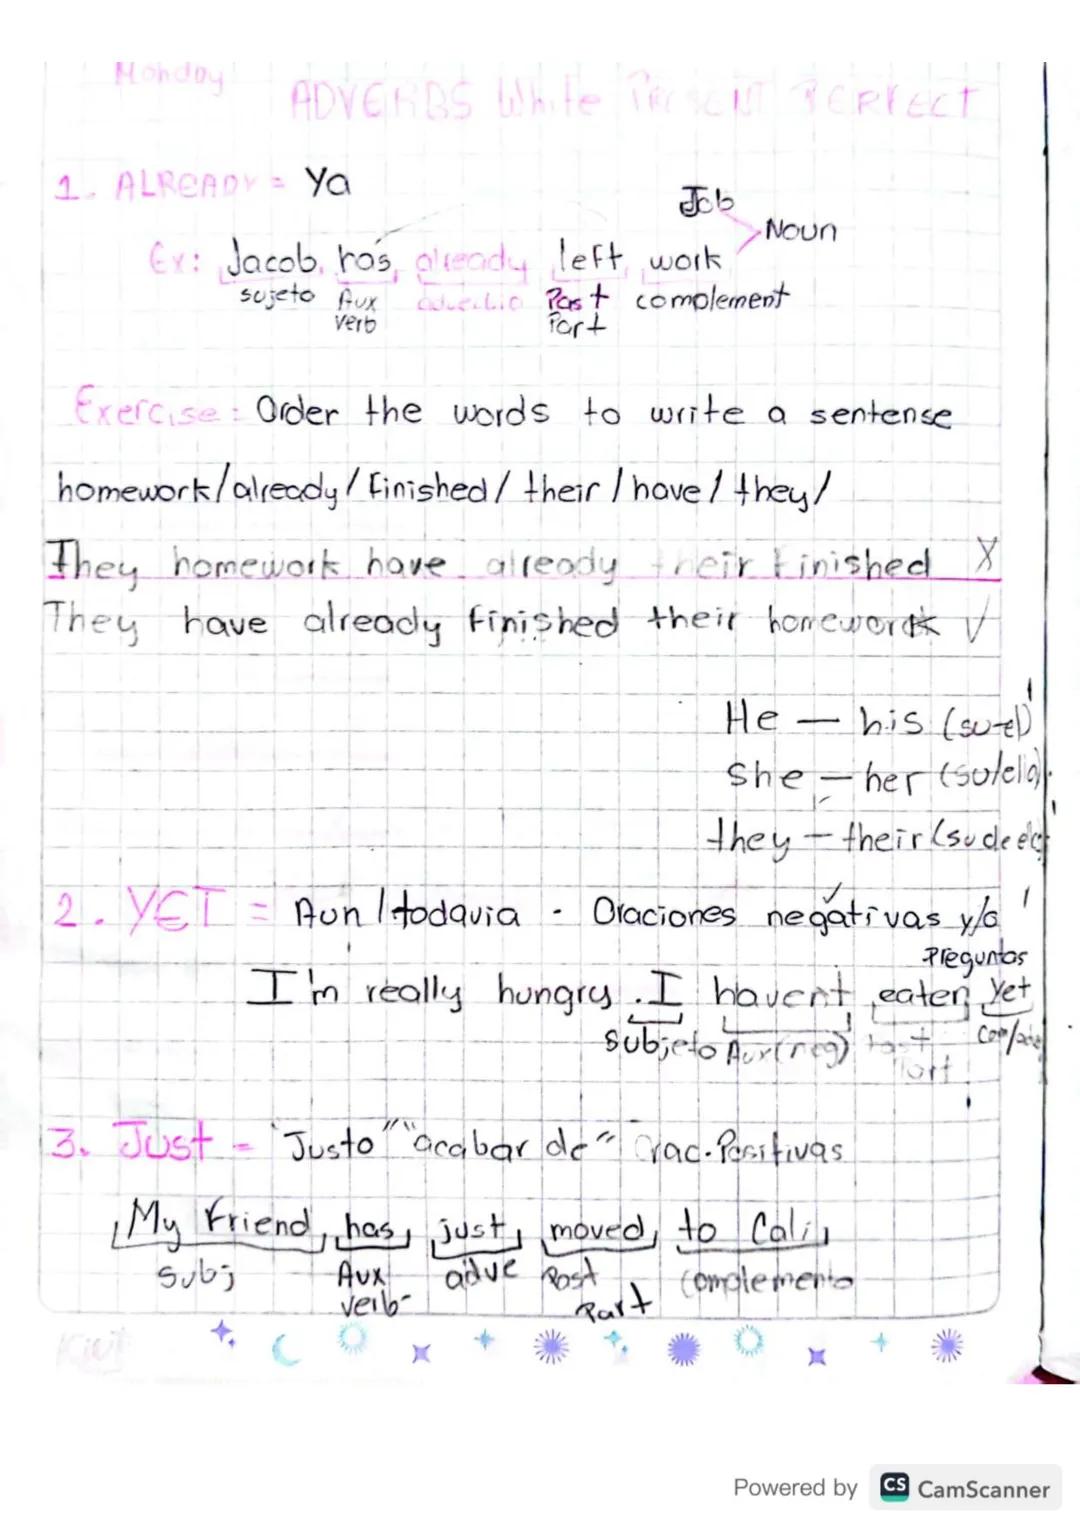 Monday
ADVERBS White PRESENT PERFECT
1. ALREADY = Ya
Job
Noun
Ex: Jacob has already left work
sujeto Aux adverbio Past complement
verb Part
Exercise: Order the words to write a sentense
homework/already/finished/their/have/they/
They homework have already their finished X
They have already finished their homework √
He - his (su-el)
She - her (su/ella)
they - their (su de
2. YET = Aun/todavia - Oraciones negativas y/o
Preguntas
I'm really hungry. I havent eaten yet
Subjeto Aux(neg) Past
Part
3. Just - "Justo" "acabar de" Orac. Positivas
My Friend has just moved to Cali
Subj Aux adve Past complemento
verb Part
Powered by CS CamScanner